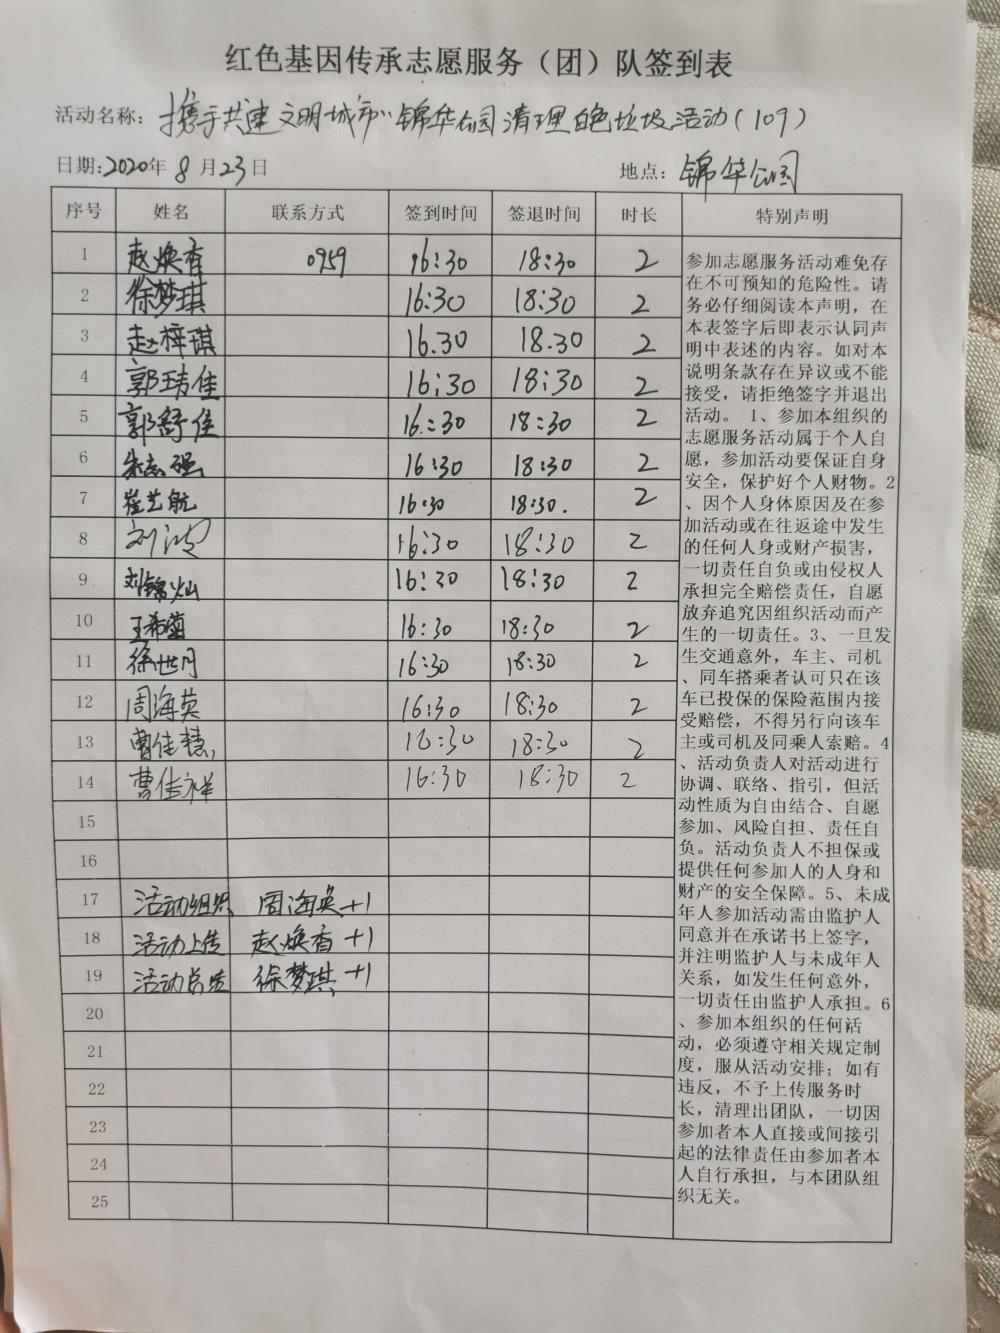 红色基因传承志愿服务（团）队签到表
活动名称：携手共建文明城市"锦华公园清理白色垃圾活动(109)
日期:2020年8月23日 地点：锦华公园
序号 姓名 联系方式 签到时间 签退时间 时长 特别声明
1 赵焕香 0959 16:30 18:30 2
2 徐梦琪 16:30 18:30 2
3 赵梓琪 16.30 18.30 2
4 郭靖佳 16:30 18:30 2
5 郭舒佳 16:30 18:30 2
6 朱志强 16:30 18:30 2
7 崔艺航 16:30 18:30. 2
8 刘波 16:30 18:30 2
9 刘锦灿 16:30 18:30 2
10 王希 16:30 18:30 2
11 徐世月 16:30 18:30 2
12 周海英 16:30 18:30 2
13 曹佳慧 16:30 18:30 2
14 曹佳祥 16:30 18:30 2
15
16
17 活动组织 周海英+1
18 活动上传 赵焕香+1
19 活动总结 徐梦琪+1
20
21
22
23
24
25
参加志愿服务活动难免存
在不可预知的危险性。请
务必仔细阅读本声明，在
本表签字后即表示认同声
明中表述的内容。如对本
说明条款存在异议或不能
接受，请拒绝签字并退出
活动。 1、参加本组织的
志愿服务活动属于个人自
愿，参加活动要保证自身
安全，保护好个人财物。2
、因个人身体原因及在参
加活动或在往返途中发生
的任何人身或财产损害，
一切责任自负或由侵权人
承担完全赔偿责任，自愿
放弃追究因组织活动而产
生的一切责任。3、一旦发
生交通意外，车主、司机
、同车搭乘者认可只在该
车已投保的保险范围内接
受赔偿，不得另行向该车
主或司机及同乘人索赔。4
、活动负责人对活动进行
协调、联络、指引，但活
动性质为自由结合、自愿
参加、风险自担、责任自
负。活动负责人不担保或
提供任何参加人的人身和
财产的安全保障。5、未成
年人参加活动需由监护人
同意并在承诺书上签字，
并注明监护人与未成年人
关系，如发生任何意外，
一切责任由监护人承担。6
、参加本组织的任何活
动，必须遵守相关规定制
度，服从活动安排；如有
违反，不予上传服务时
长，清理出团队，一切因
参加者本人直接或间接引
起的法律责任由参加者本
人自行承担，与本团队组
织无关。